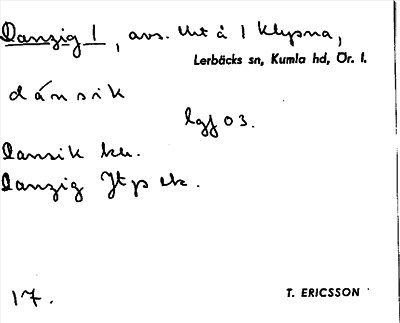 Danzig 1, avs. Utå 1 Klysna,
Lerbäcks sn, Kumla hd, Ör. l.
dánsik
lgf 03.
Dansik kb.
Danzig Jtp ek.
17.
T. ERICSSON